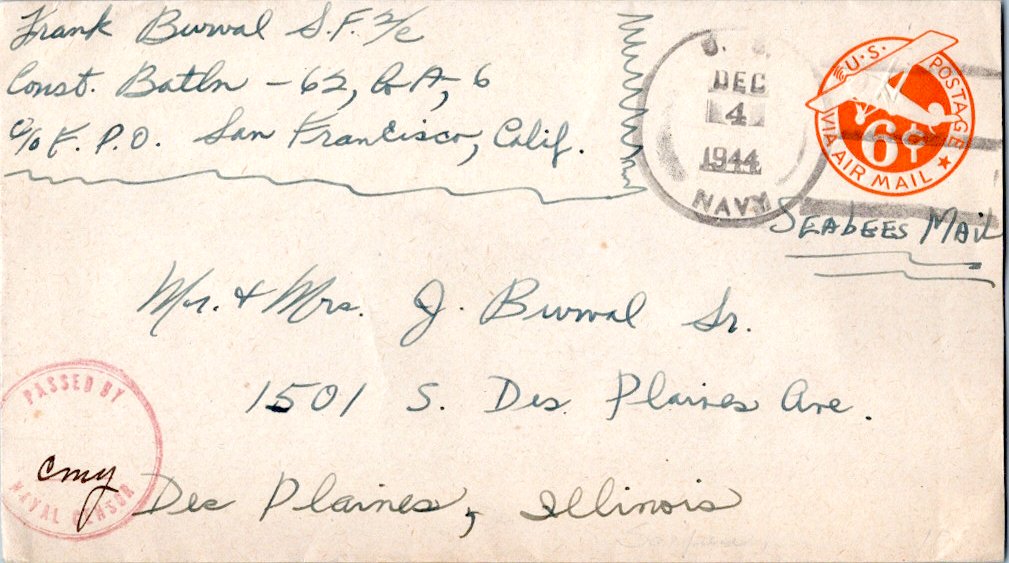 Frank Burval S.F. 2/c
Const. Batln - 62, Co-A, 6
c/o F. P. O. San Francisco, Calif.
U. S.
DEC
4
1944
NAVY
U.S. POSTAGE
6¢
VIA AIR MAIL
SEAbEES MAil
Mr. & Mrs. J. Burval Sr.
1501 S. Des Plaines Ave.
Des Plaines, Illinois
PASSED BY
cmy
NAVAL CENSOR